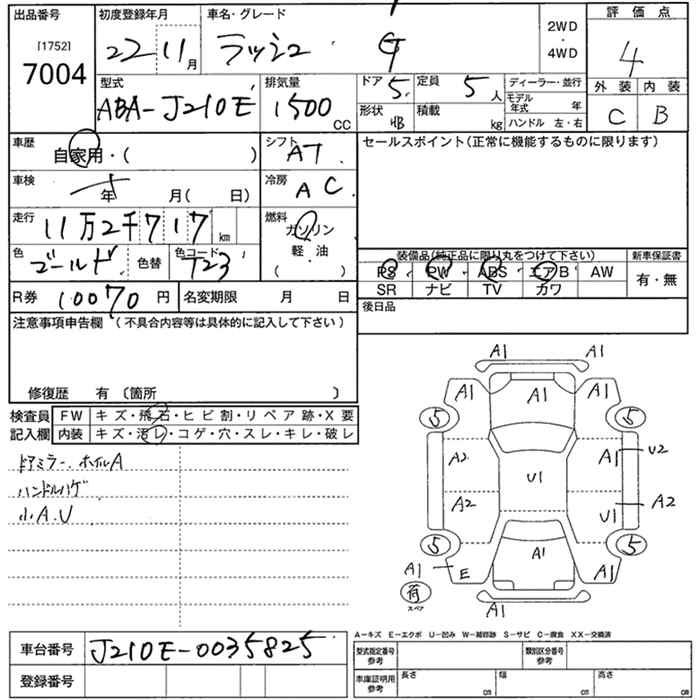 出品番号 初度登録年月 車名・グレード 2WD ・ 4WD 評価点
[1752] 7004 22 11月 ラッシュ G 4
型式 排気量 ドア 5 定員 5人 ディーラー・並行 外装 内装
ABA-J210E 1500CC 形状 HB 積載 kg モデル年式 年 C B
ハンドル 左・右
車歴 自家用・( ) シフト AT セールスポイント(正常に機能するものに限ります)
車検 年 月( 日) 冷房 AC
走行 11万2千717km 燃料 ガソリン
色 ゴールド 色替 色コード T23 軽油 ( )
装備品(純正品に限り丸をつけて下さい) 新車保証書
PS PW ABS エアB AW 有・無
SR ナビ TV カワ
R券 10070円 名変期限 月 日 後日品
注意事項申告欄 (不具合内容等は具体的に記入して下さい)
修復歴 有 〔箇所 〕
検査員記入欄 FW キズ・飛石・ヒビ割・リペア跡・X要
内装 キズ・汚レ・コゲ・穴・スレ・キレ・破レ
ドアミラー、ホイルA
ハンドルハゲ
小A.U
A1 A1
A1 A1 A1
5 5
A2 A1 U2
U1
A2 U1 A2
5 A1 5
A1 E A1
荷 スペア A1
A-キズ E-エクボ U-凹み W-補修跡 S-サビ C-腐食 XX-交換済
車台番号 J210E-0035825 型式指定番号 参考 類別区分番号 参考
登録番号 車庫証明用 参考 長さ cm 幅 cm 高さ cm